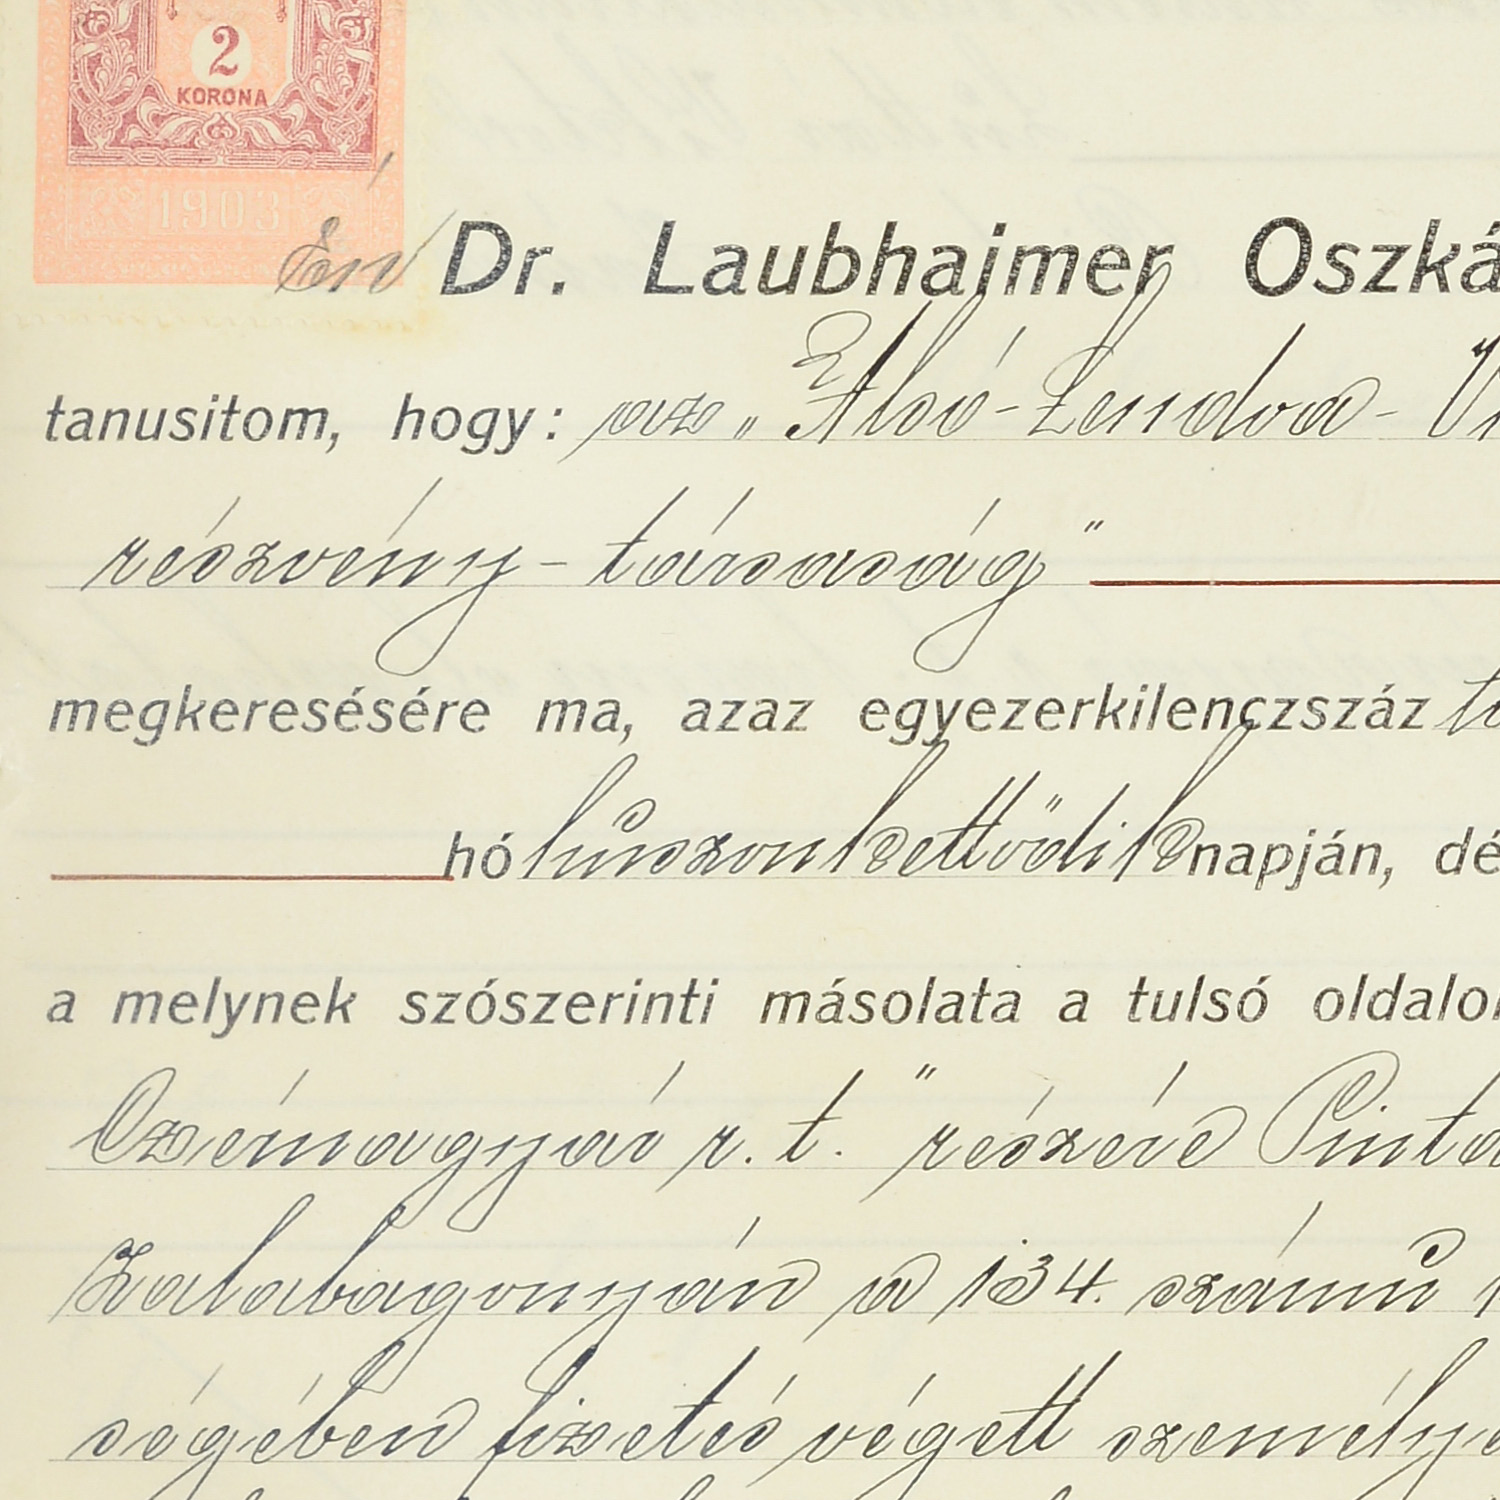 2
KORONA
1903
Én Dr. Laubhaimer Oszká
tanusitom, hogy: az „Alsó-Lendva-
részvény-társaság"
megkeresésére ma, azaz egyezerkilenczszáz
hó huszonkettödik napján, dé
a melynek szószerinti másolata a tulsó oldalo
Czémagyár r. t." részére Pinté
Zalabagonyán a 134. számú
ségében fizetés végett személye